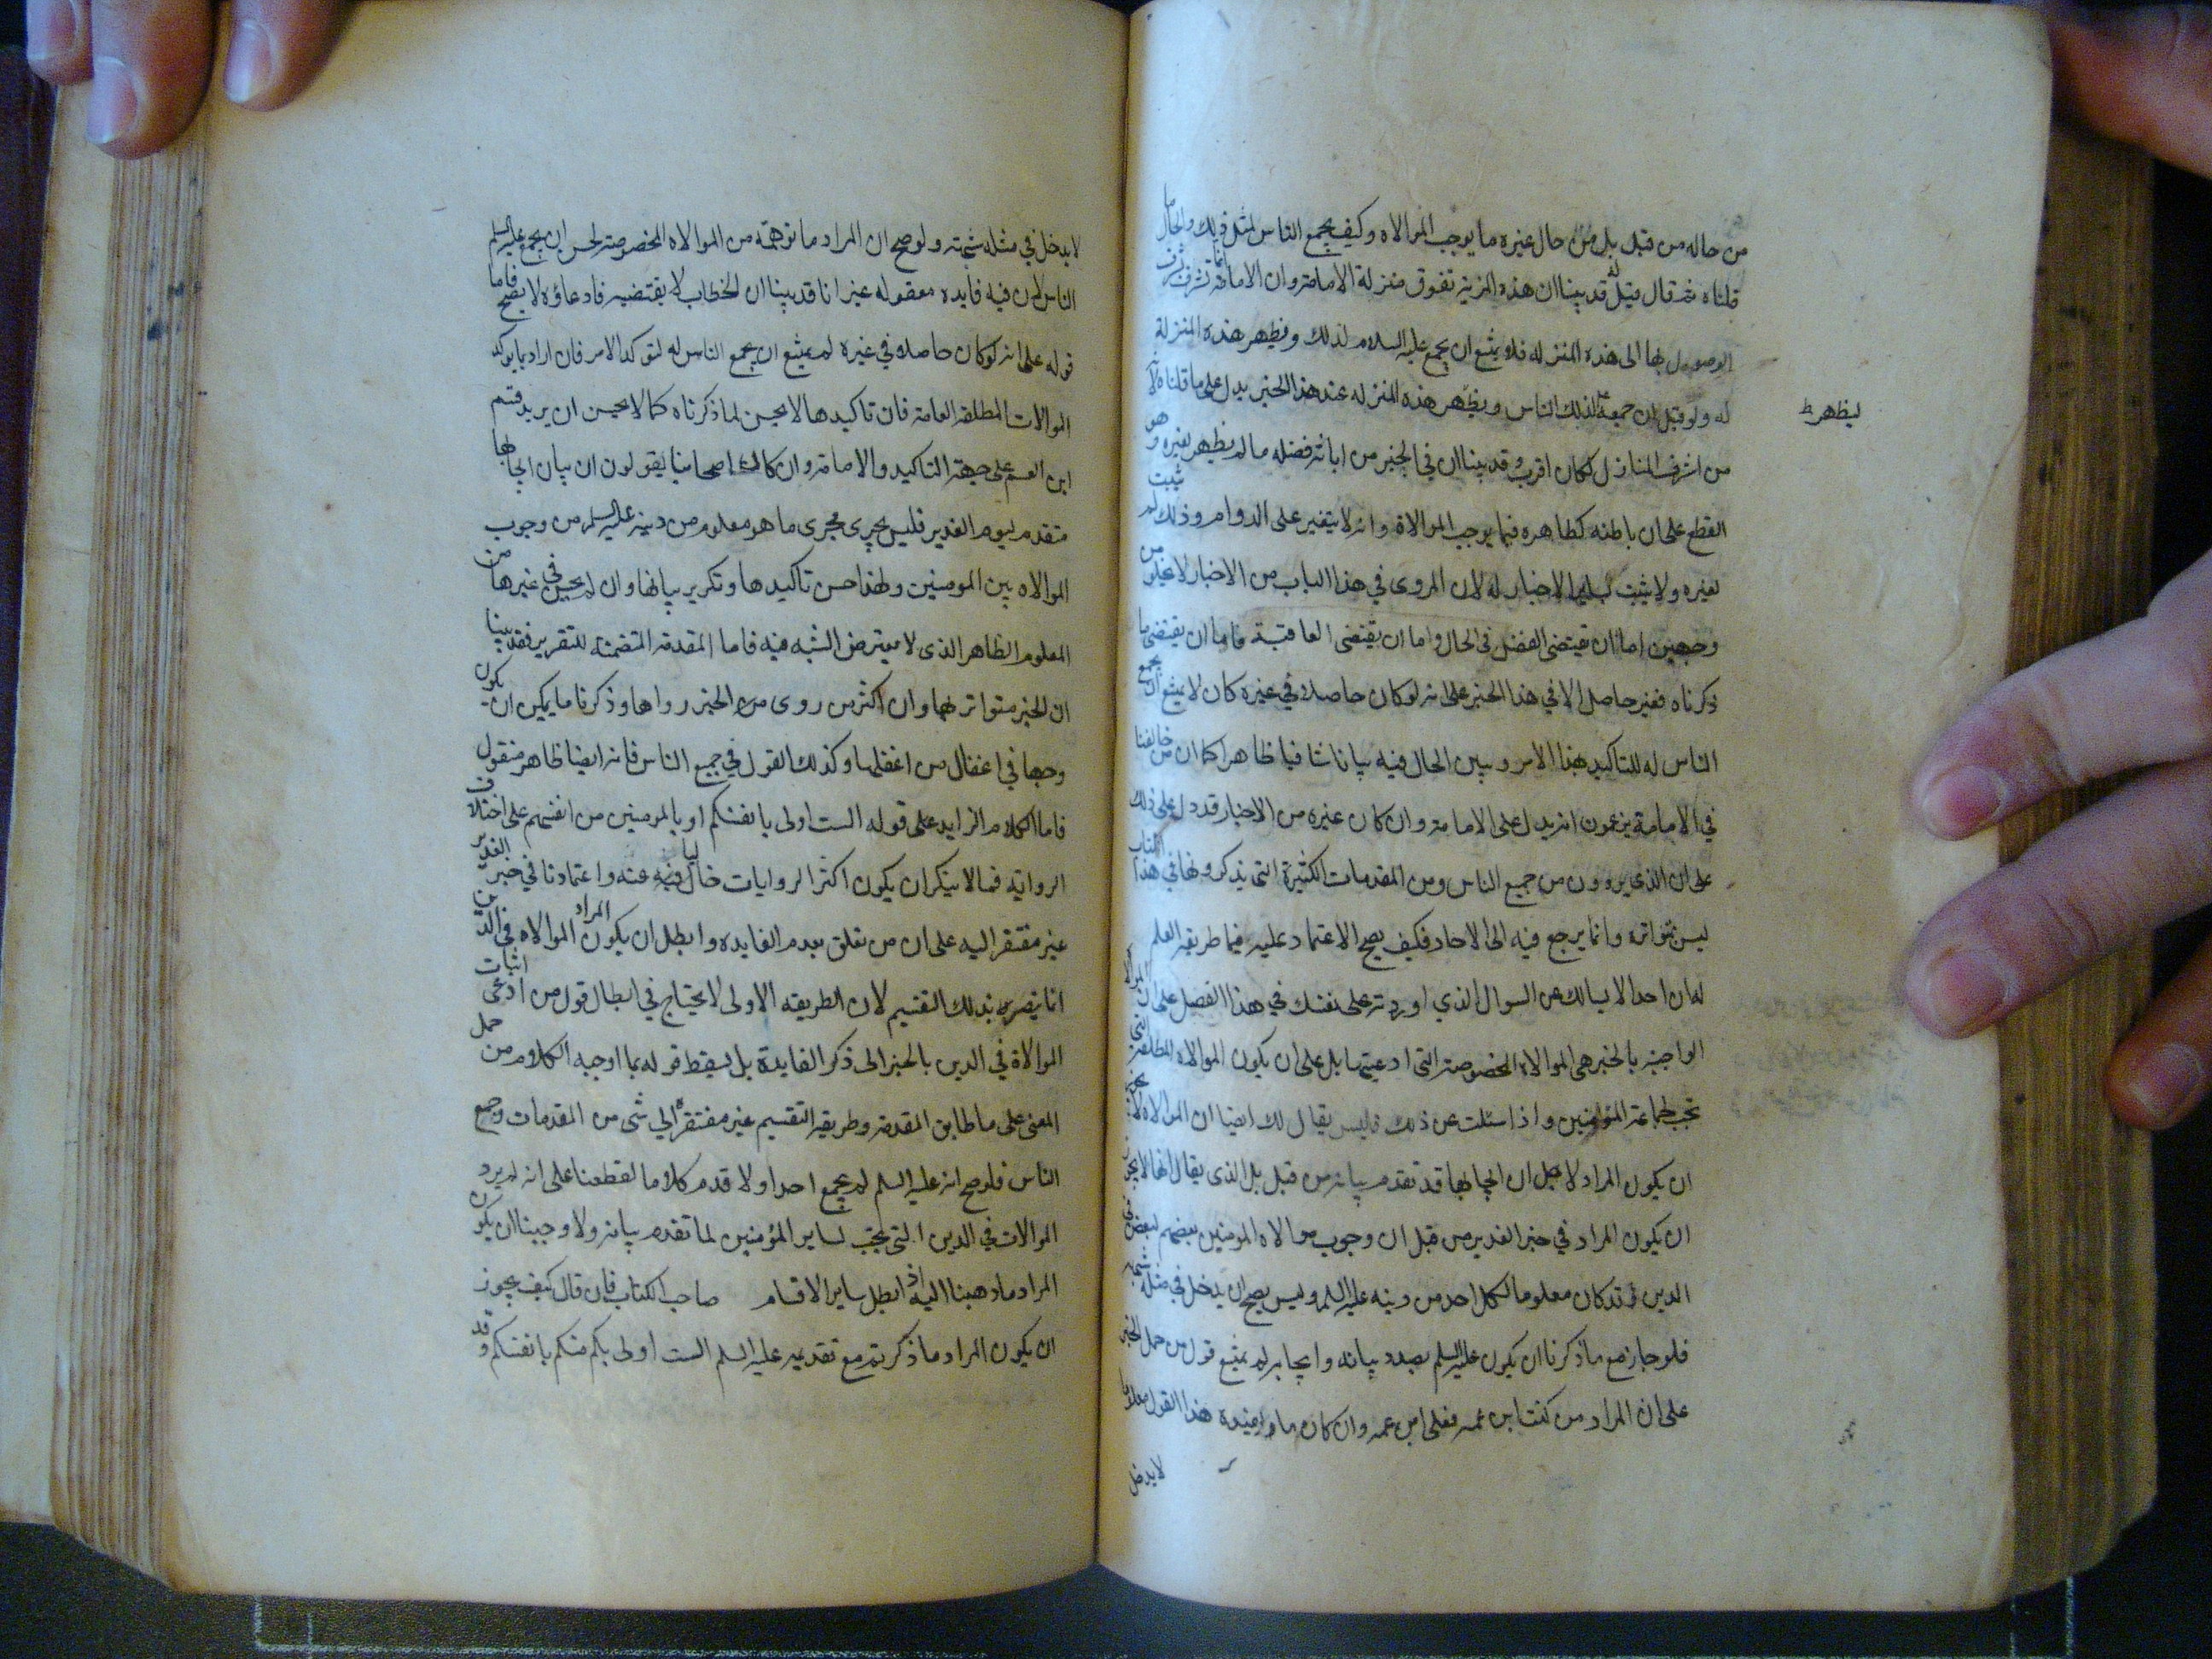 من حاله من قبل بل من حال غيره ما يوجب الموالاه وكيف يجمع الناس لمثل ذلك والحال ما
قلناه ثم قال قيل له قد بينا ان هذه المزية تفوق منزلة الامامة وان الامامة انما تشرف
الوصول بها الى هذه المنزله فلا يمتنع ان يجمع عليه السلام لذلك ويظهر هذه المنزلة
ليظهر ط
له ولو قيل ان جمعه لذلك الناس ويظهر هذه المنزله عند هذا الخبر يدل على ما قلناه لانه
من اشرف المنازل لكان اقرب وقد بينا ان في الخبر من ابانة فضله ما لم يظهر بغيره وهو
القطع على ان باطنه كظاهره فيما يوجب الموالاة وانه لا يتغير على الدوام وذلك لم يثبت
لغيره ولا يثبت بساير الاخبار له لان المروى في هذا الباب من الاخبار لا يخلو من
وجهين اما ان يقتضى الفضل في الحال واما ان يقتضى العاقبة فاما ان يقتضى ما
ذكرناه فغير حاصل الا في هذا الخبر على انه لو كان حاصلا في غيره كان لا يمتنع ان يجمع
الناس له للتاكيد هذا الامر ويبين الحال فيه بيانا شافيا ظاهرا كما ان من خالفنا
في الامامة يزعمون انه يدل على الامامة وان كان غيره من الاخبار قد دل على ذلك
على ان الذى يروون من جميع الناس ومن المقدمات الكثيرة التى يذكرونها في هذا الكتاب
ليس بتواتره وانما يرجع فيه الى الاحاد فكيف يصح الاعتماد عليه فيما طريقه العلم
له ان احدا لا يسالك عن السوال الذي اوردته على نفسك في هذا الفصل على ان الموالاه
الواجبة بالخبر هى الموالاه المخصوصة التى ادعيتها بل على ان يكون الموالاه المطلقة التى
تجب لجماعة المؤمنين واذا سئلت عن ذلك فليس يقال لك ايضا ان الموالاه لا يجوز
ان يكون المراد لاجل ان ايجابها قد تقدم بيانه من قبل بل الذى يقال انها لا يجوز
ان يكون المراد في خبر الغدير من قبل ان وجوب موالاه المومنين بعضهم لبعض في
الدين قد كان معلوما لكل احد من دينه عليه السلم وليس يصح ان يدخل في مثله شبهة
فلو جاز مع ما ذكرنا ان يكون عليه السلم بصدد بيانه وايجابه لم يمتنع قول من حمل الخبر
على ان المراد من كنت ابن عمه فعلى ابن عمه وان كان ما يفيده هذا القول معلوما
لا يدخل
لا يدخل في مثله شبهة ولو صح ان المراد ما توهمته من الموالاه المخصوصة لحسن ان يجمع عليه السلم
الناس لان فيه فايده معقوله غير انا قد بينا ان الخطاب لا يقتضيه فادعاؤه لا يصح فاما
قوله على انه لو كان حاصلا في غيره لم يمتنع ان يجمع الناس له لتوكد الامر فان اراد بما يوكد
الموالات المطلقه العامة فان تاكيدها لا يحسن لما ذكرناه كما لا يحسن ان يريد قسم
ابن العم على جهة التاكيد والامامة وان كان اصحابنا يقولون ان بيان ايجابها
متقدم ليوم الغدير فليس يجرى مجرى ما هو معلوم من دينه عليه السلم من وجوب
الموالاه بين المومنين ولهذا حسن تاكيدها وتكرير بيانها وان لم يحسن في غيرها من
المعلوم الظاهر الذى لا يعترض الشبه فيه فاما المقدمة المتضمنة للتقرير فقد بينا
ان الخبر متواتر بها وان اكثر من روى من الخبر رواها وذكرنا ما يمكن ان يكون
وجها في اغفال من اغفلها وكذلك القول في جميع الناس فانه ايضا ظاهر منقول
فاما الكلام الزايد على قوله الست اولى بانفسكم او بالمومنين من انفسهم على اختلاف
الرواية فمما لا ينكر ان يكون اكثر الروايات خاليا فيه عنه واعتمادنا في خبر الغدير
غير مفتقر اليه على ان من تعلق بعدم الفايده وابطل ان يكون المراد الموالاه في الدين
انما يتصرم بذلك التقسيم لان الطريقه الاولى لا يحتاج في ابطال قول من ادعى اثبات
الموالاة في الدين بالخبر الى ذكر الفايدة بل يسقط قوله بما اوجبه الكلام من حمل
المعنى على ما طابق المقدمة وطريقه التقسيم غير مفتقرة الي شى من المقدمات وجمع
الناس فلو صح انه عليه السلم لم يجمع احدا ولا قدم كلاما لقطعنا على انه لم يرد
الموالات في الدين التى تجب لساير المؤمنين لما تقدم بيانه ولاوجبنا ان يكون
المراد ما ذهبنا اليه اذا بطل ساير الاقسام صاحب الكتاب فان قال كيف يجوز
ان يكون المراد ما ذكرتم مع تقديمه عليه السلم الست اولى بكم منكم بانفسكم وقد